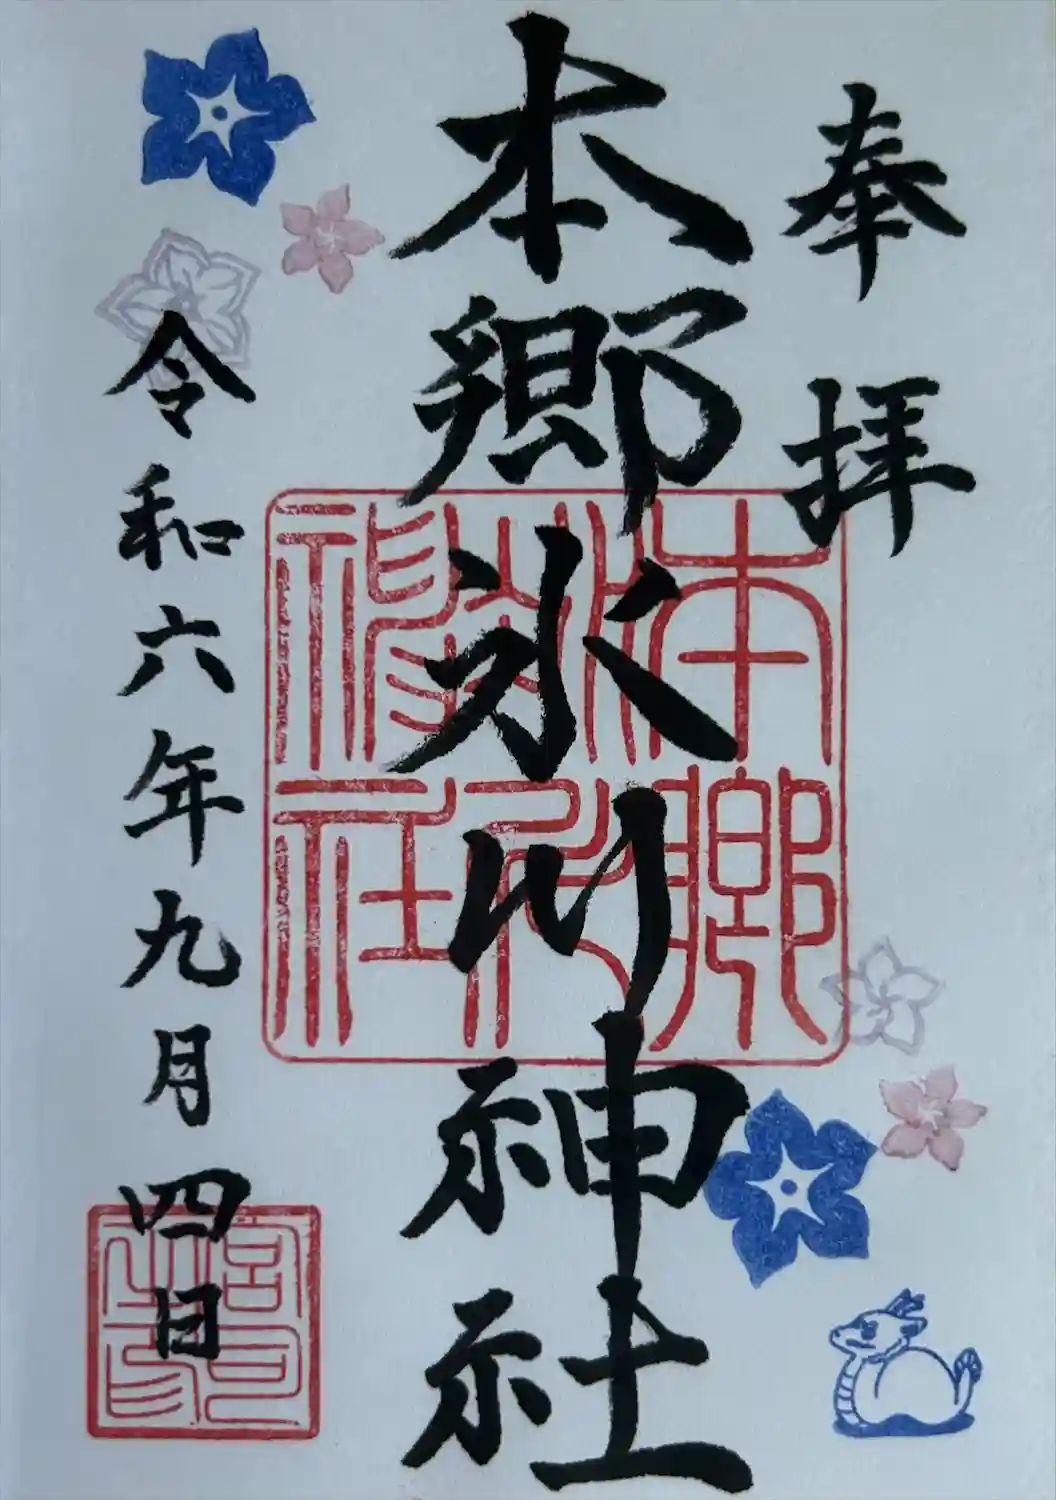 奉拝
本郷氷川神社
令和六年九月四日
本郷氷川神社